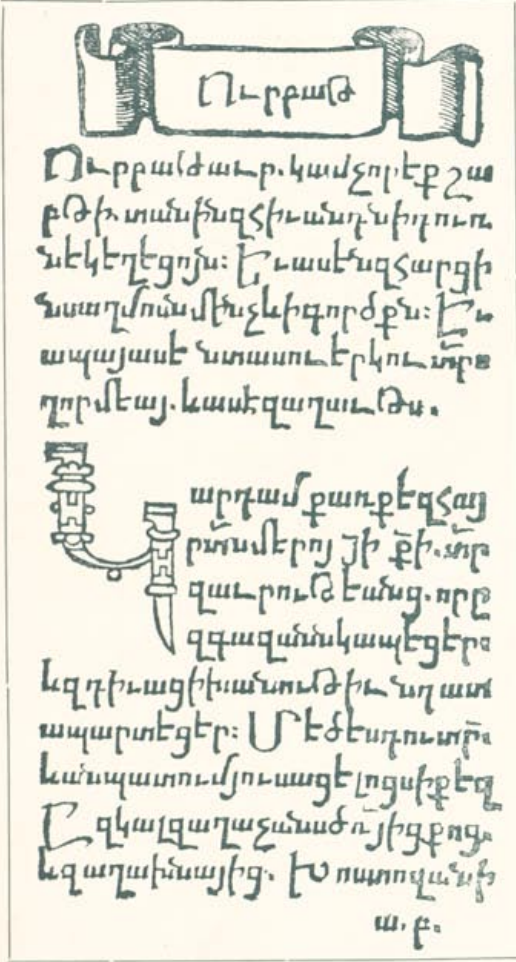 Ուրբաթ
Ուրբաթաւր. կամ չորեք շա
բթի. տանին զհիւանդն ի դուռ
ն եկեղեցոյն։ Եւ ասեն զհարցի
ն սաղմոսն մինչև ի գործքն։ Եւ
ապա յասէ երկու տ՜ր ո
ղորմեայ. և ասէ զաղաւթս.
Կարդամ ք առ քեզ հայ
մերոյ յի ք՜ի. տ՜ր
զաւրութեանց. որ ը
զգազանն կապեցեր.
և զդիւացի
ապարտեցեր։ Մեծ ես դու տ՜ր.
և անպատում յուսացելոցս ի քեզ
Ընկալ զաղաչանս ծռ՜յից քոց.
և զաղախնայից. Խոստովանի
ա. բ.